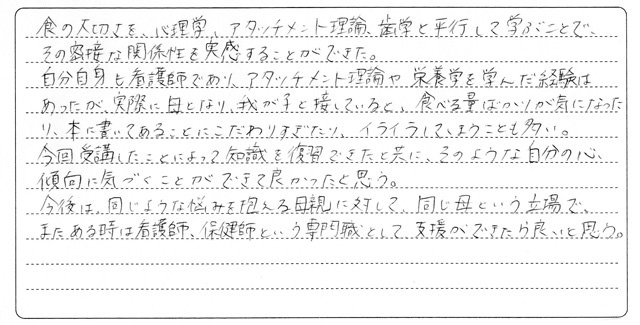 食の大切さを、心理学、アタッチメント理論、歯学と平行して学ぶことで、
その密接な関係性を実感することができた。
自分自身も看護師であり、アタッチメント理論や栄養学を学んだ経験は
あったが、実際に母となり、我が子と接していると、食べる量ばかりが気になった
り、本に書いてあることにこだわりすぎたり、イライラしてしまうことも多い。
今回受講したことによって知識を復習できたと共に、そのような自分の心、
傾向に気づくことができて良かったと思う。
今後は、同じような悩みを抱える母親に対して、同じ母という立場で、
またある時は看護師、保健師という専門職として支援ができたら良いと思う。